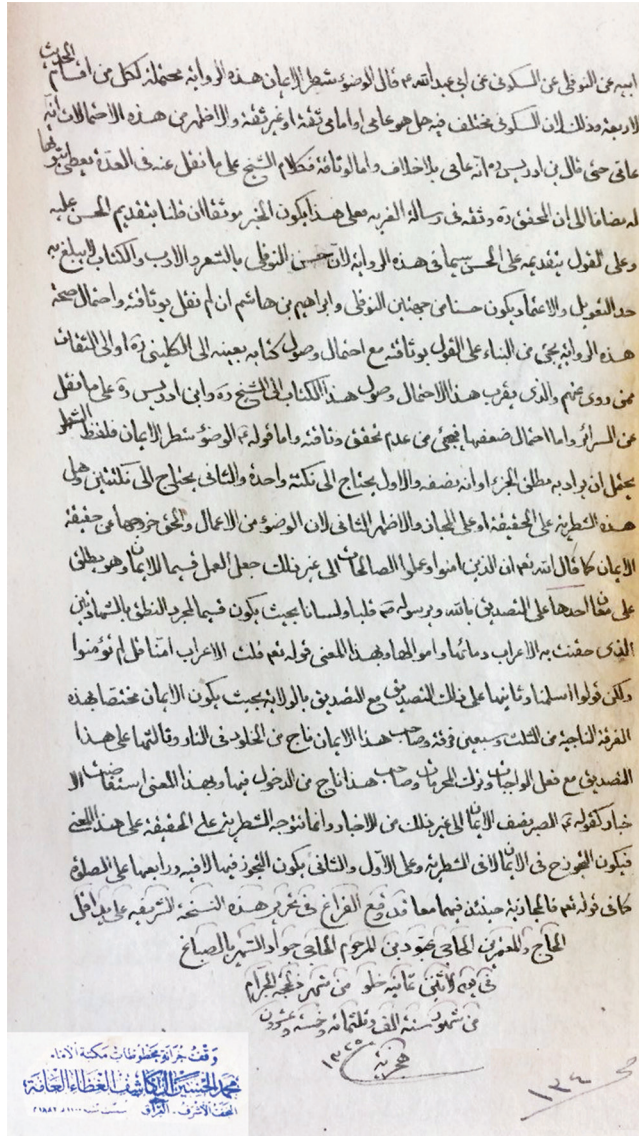 الحديث
ابيه عن النوفلى عن السكونى عن ابى عبد الله ع قال الوضوء شطر الايمان هذه الرواية محتملة لكل من اقسام
الاربعة وذلك لان السكونى مختلف فيه هل هو عامى او امامى ثقة او غير ثقة والاظهر من هذه الاحتمالات انه
عامى حتى قال بن ادريس ره انه عامى بلا خلاف واما الوثاقة فكلام الشيخ على ما نقل عنه فى العدة يعطى
له مضافا الى ان المحقق ره وثقه فى رسالة الغرية فعلى هذا يكون الخبر موثقا ان قلنا بتقديم الحسن عليه
وعلى القول بتقديمه على الحسن سيما فى هذه الرواية لان حسن النوفلى بالشعر والادب والكتاب لا يبلغ به
حد التعويل والاعتماد يكون حسنا من جهتين النوفلى وابراهيم بن هاشم ان لم نقل بوثاقته واحتمال صحة
هذه الرواية يجئ من البناء على القول بوثاقته مع احتمال وصول كتابه بعينه الى الكلينى ره او الى الثقات
ممن روى عنهم والذى يقرب هذا الاحتمال وصول هذا الكتاب الى الشيخ ره وابن ادريس ره على ما نقل
عن السرائر واما احتمال ضعفها فيجئ من عدم تحقق وثاقته واما قوله ع الوضوء شطر الايمان فلفظ الشطر
يحتمل ان يراد به مطلق الجزء او انه نصفه والاول يحتاج الى نكتة واحدة والثانى يحتاج الى نكتتين وهل
هذه الشطرية على الحقيقة او على المجاز والاظهر الثانى لان الوضوء من الاعمال والحق خروجها عن حقيقة
الايمان كما قال الله تع ان الذين امنوا وعملوا الصالحات الى غير ذلك جعل العمل قسيما للايمان وهو يطلق
على معان احدها على التصديق بالله وبرسوله ص قلبا ولسانا بحيث يكون قسيما لمجرد النطق بالشهادتين
الذى حقنت به الاعراب دمائها واموالها وبهذا المعنى قوله تع قالت الاعراب امنا قل لم تؤمنوا
ولكن قولوا اسلمنا وثانيها على ذلك التصديق مع التصديق بالولاية بحيث يكون الايمان مختصا بهذه
الفرقة الناجية من الثلث وسبعين فرقة وصاحب هذا الايمان ناج من الخلود فى النار وثالثها على هذا
التصديق مع فعل الواجبات وترك المحرمات وصاحب هذا ناج من الدخول فيها وبهذا المعنى استفاضت الا
خبار كقوله ع الصبر نصف الايمان الى غير ذلك من الاخبار وانما تتوجه الشطرية على الحقيقة على هذا المعنى
فيكون التجوز ح فى الايمان لا فى الشطرية وعلى الاول والثانى يكون التجوز فيها لا فيه ورابعها على الصلوة
كما فى قوله تع فالمجازية حينئذ فيهما معا قد وقع الفراغ فى تحرير هذه النسخة الشريفة على يد اقل
الحاج والمعمرين الحاجى عبود بن المرحوم الحاجى جواد الشهير بالصباغ
فى يوم الاثنين ثمانية خلو من شهر ذى الحجة الحرام
من شهور سنة الف وثلثمائة وخمسة وعشرون
هجرية ١٣٢٥
١٣٤
وقف خزانة مخطوطات مكتبة الامام
محمد الحسين آل كاشف الغطاء العامة
النجف الأشرف - العراق